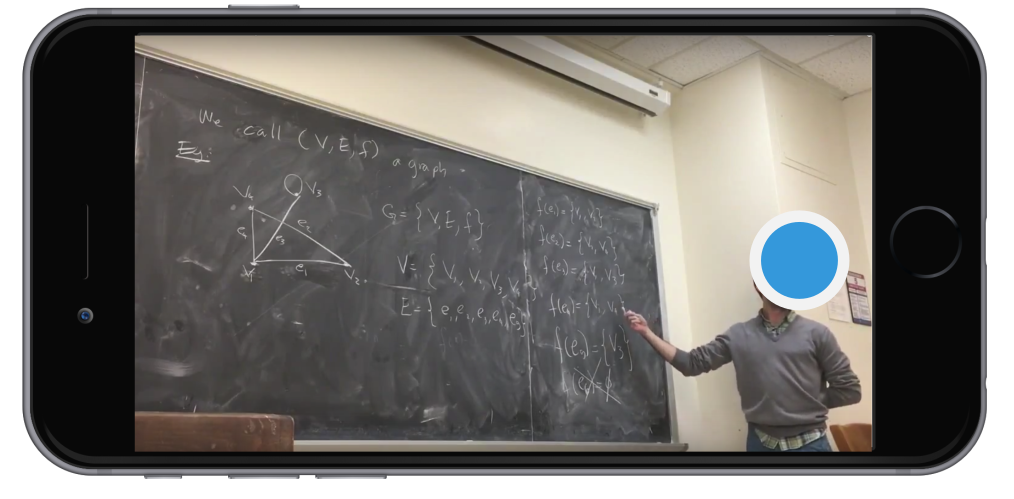 We call (V, E, f) a graph.
Eg:
V₄
V₃
e₂
e₄
e₃
V₁
e₁
V₂
G = { V, E, f }
V = { V₁, V₂, V₃, V₄ }
E = { e₁, e₂, e₃, e₄, e₅ }
f(e₁) = {V₁, V₂}
f(e₂) = {V₂, V₄}
f(e₃) = {V₁, V₃}
f(e₄) = {V₁, V₄}